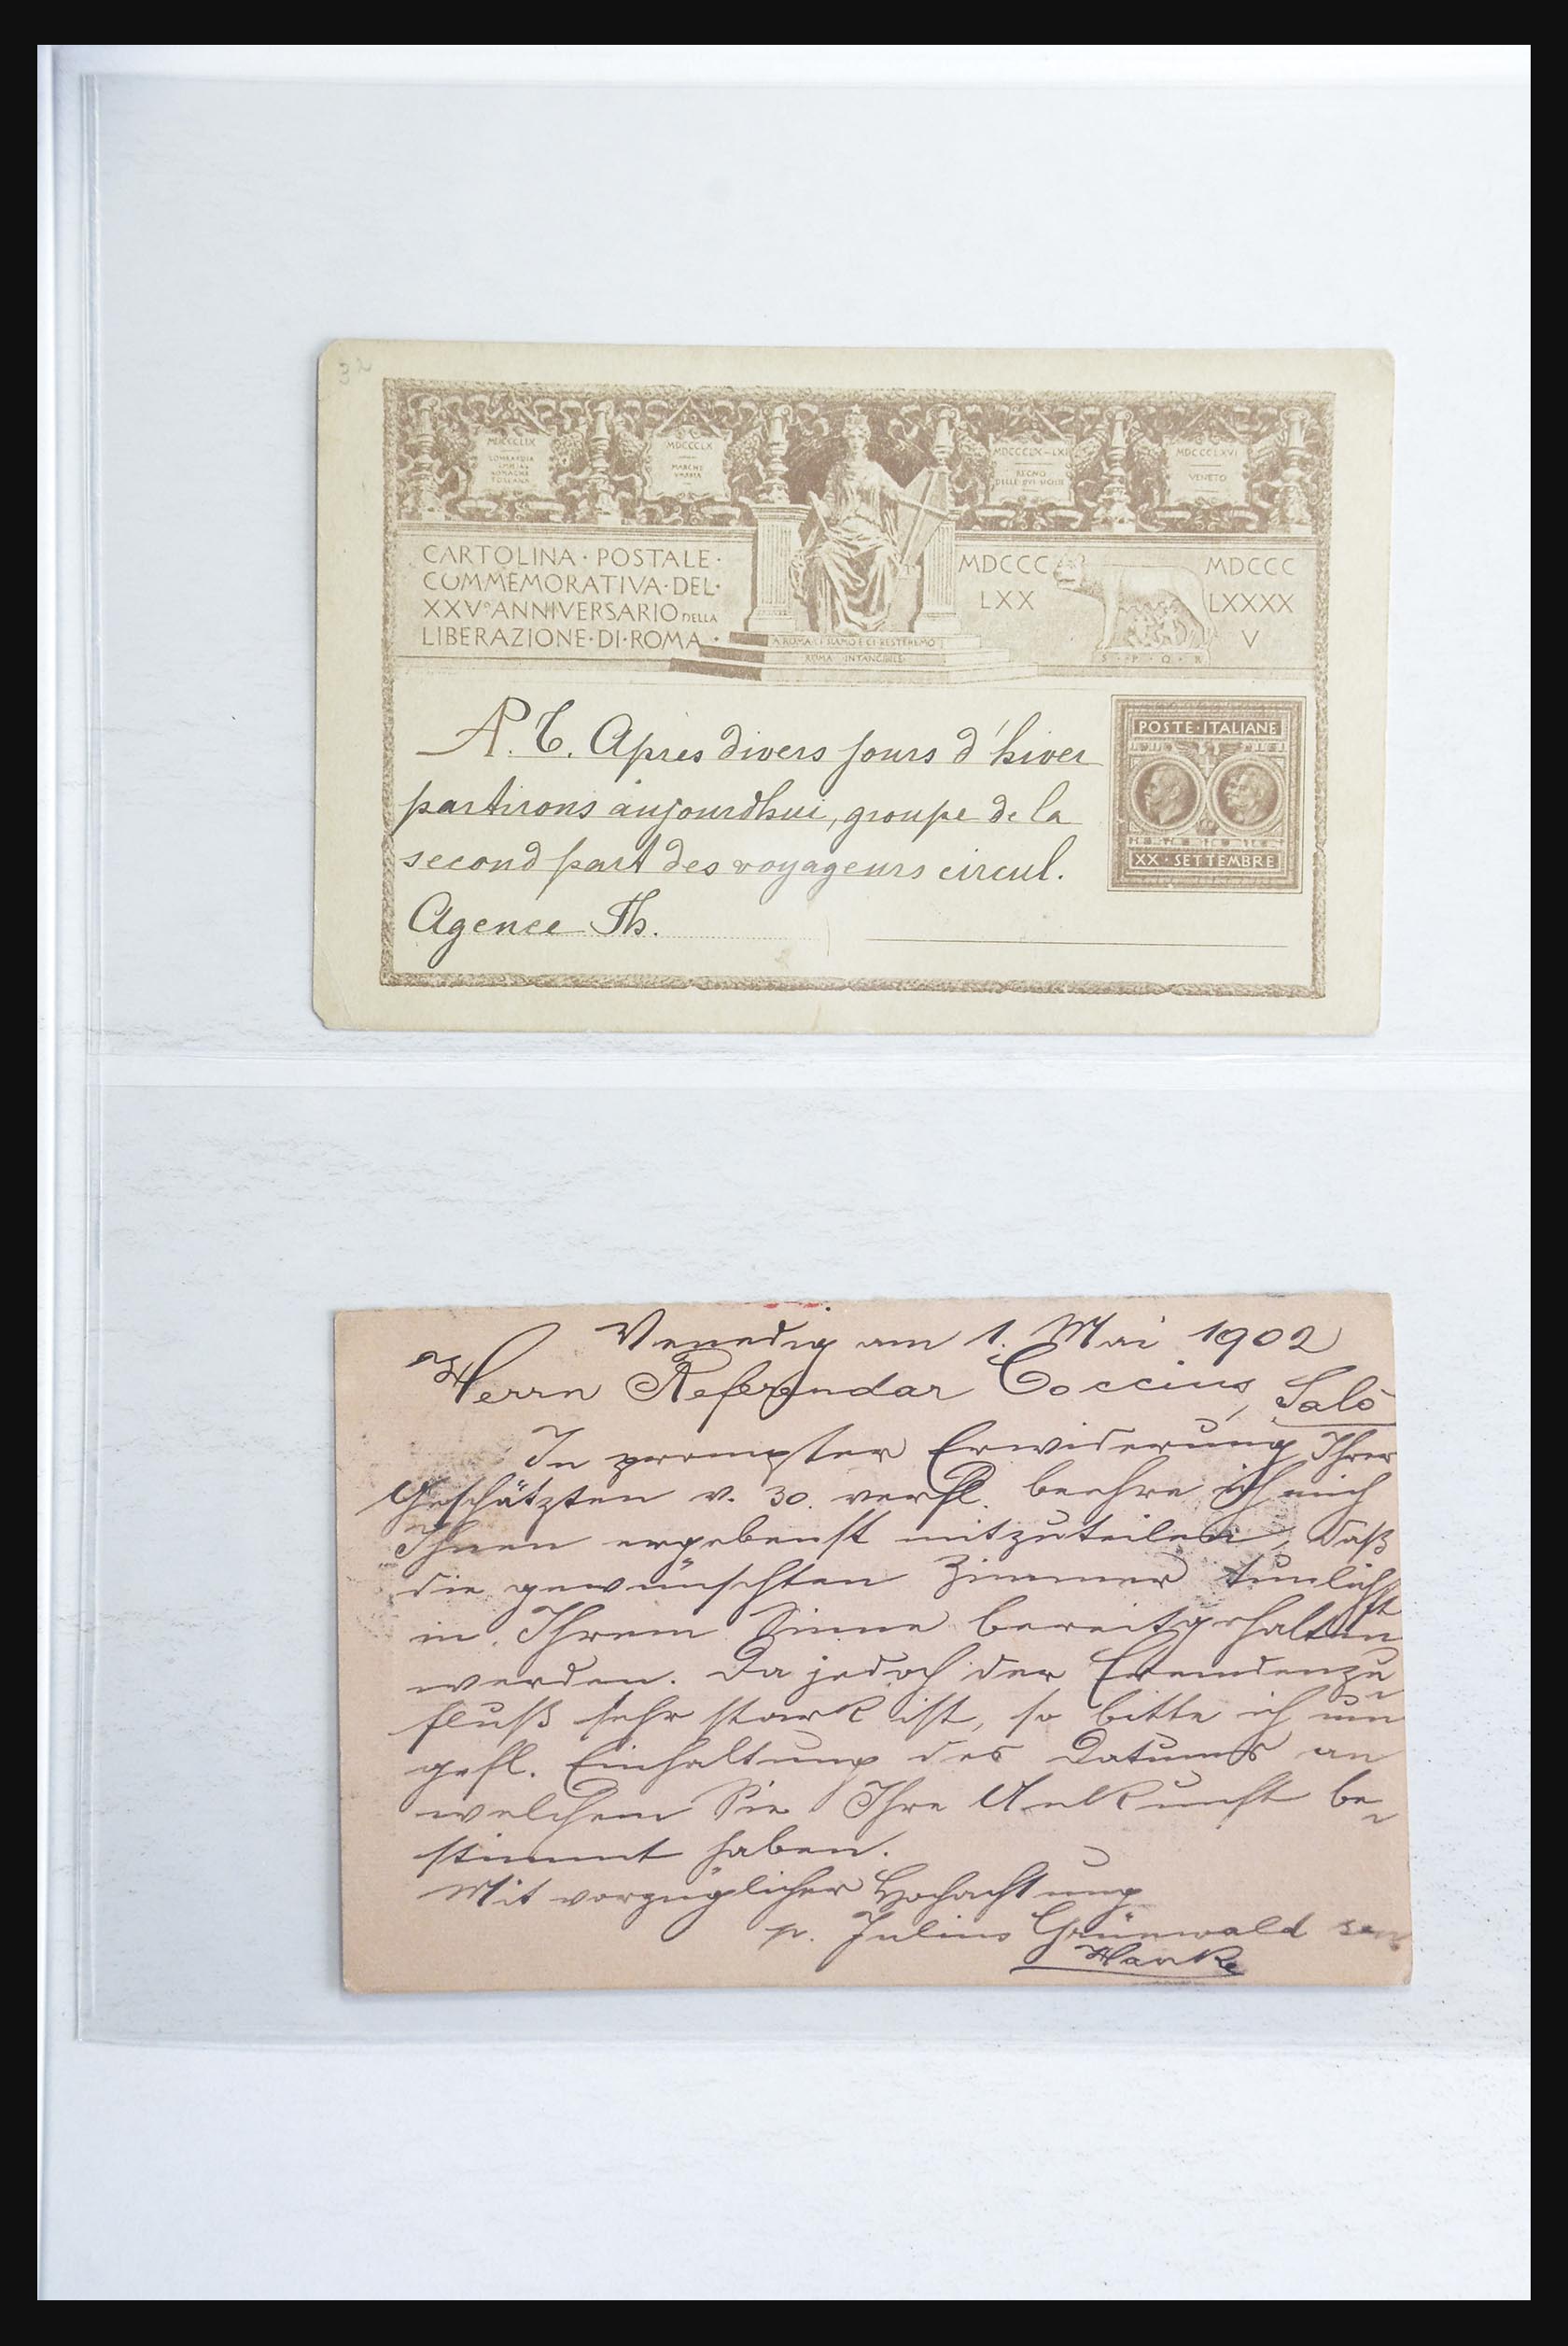 32
MDCCCLIX
LOMBARDIA
EMILIA
ROMAGNA
TOSCANA
MDCCCLX
MARCHE
UMBRIA
MDCCCLX-LXI
REGNO
DELLE DVE SICILIE
MDCCCLXVI
VENETO
CARTOLINA · POSTALE ·
COMMEMORATIVA · DEL ·
XXV° ANNIVERSARIO DELLA
LIBERAZIONE · DI · ROMA ·
A ROMA CI SIAMO E CI RESTEREMO
ROMA INTANGIBILE
MDCCC
LXX
S · P · Q · R
MDCCC
LXXXX
V
POSTE · ITALIANE
XX · SETTEMBRE
A. T. Apres divers jours d'hiver
partirons aujourdhui, groupe de la
second part des voyageurs circul.
Agence Th.
Venedig am 1. Mai 1902
Herrn Referendar Coccius, Salò
In prompter Erwiderung Ihrer
Geschätzten v. 30. verfl. beehre ich mich
Ihnen ergebenst mitzuteilen, daß
die gewünschten Zimmer tunlichst
in Ihrem Sinne bereitgehalten
werden. Da jedoch der Fremdenzu
fluß sehr stark ist, so bitte ich um
gefl. Einhaltung des Datums an
welchem Sie Ihre Ankunft be
stimmt haben.
Mit vorzüglicher Hochachtung
p. Julius Grünwald sen
Hanke